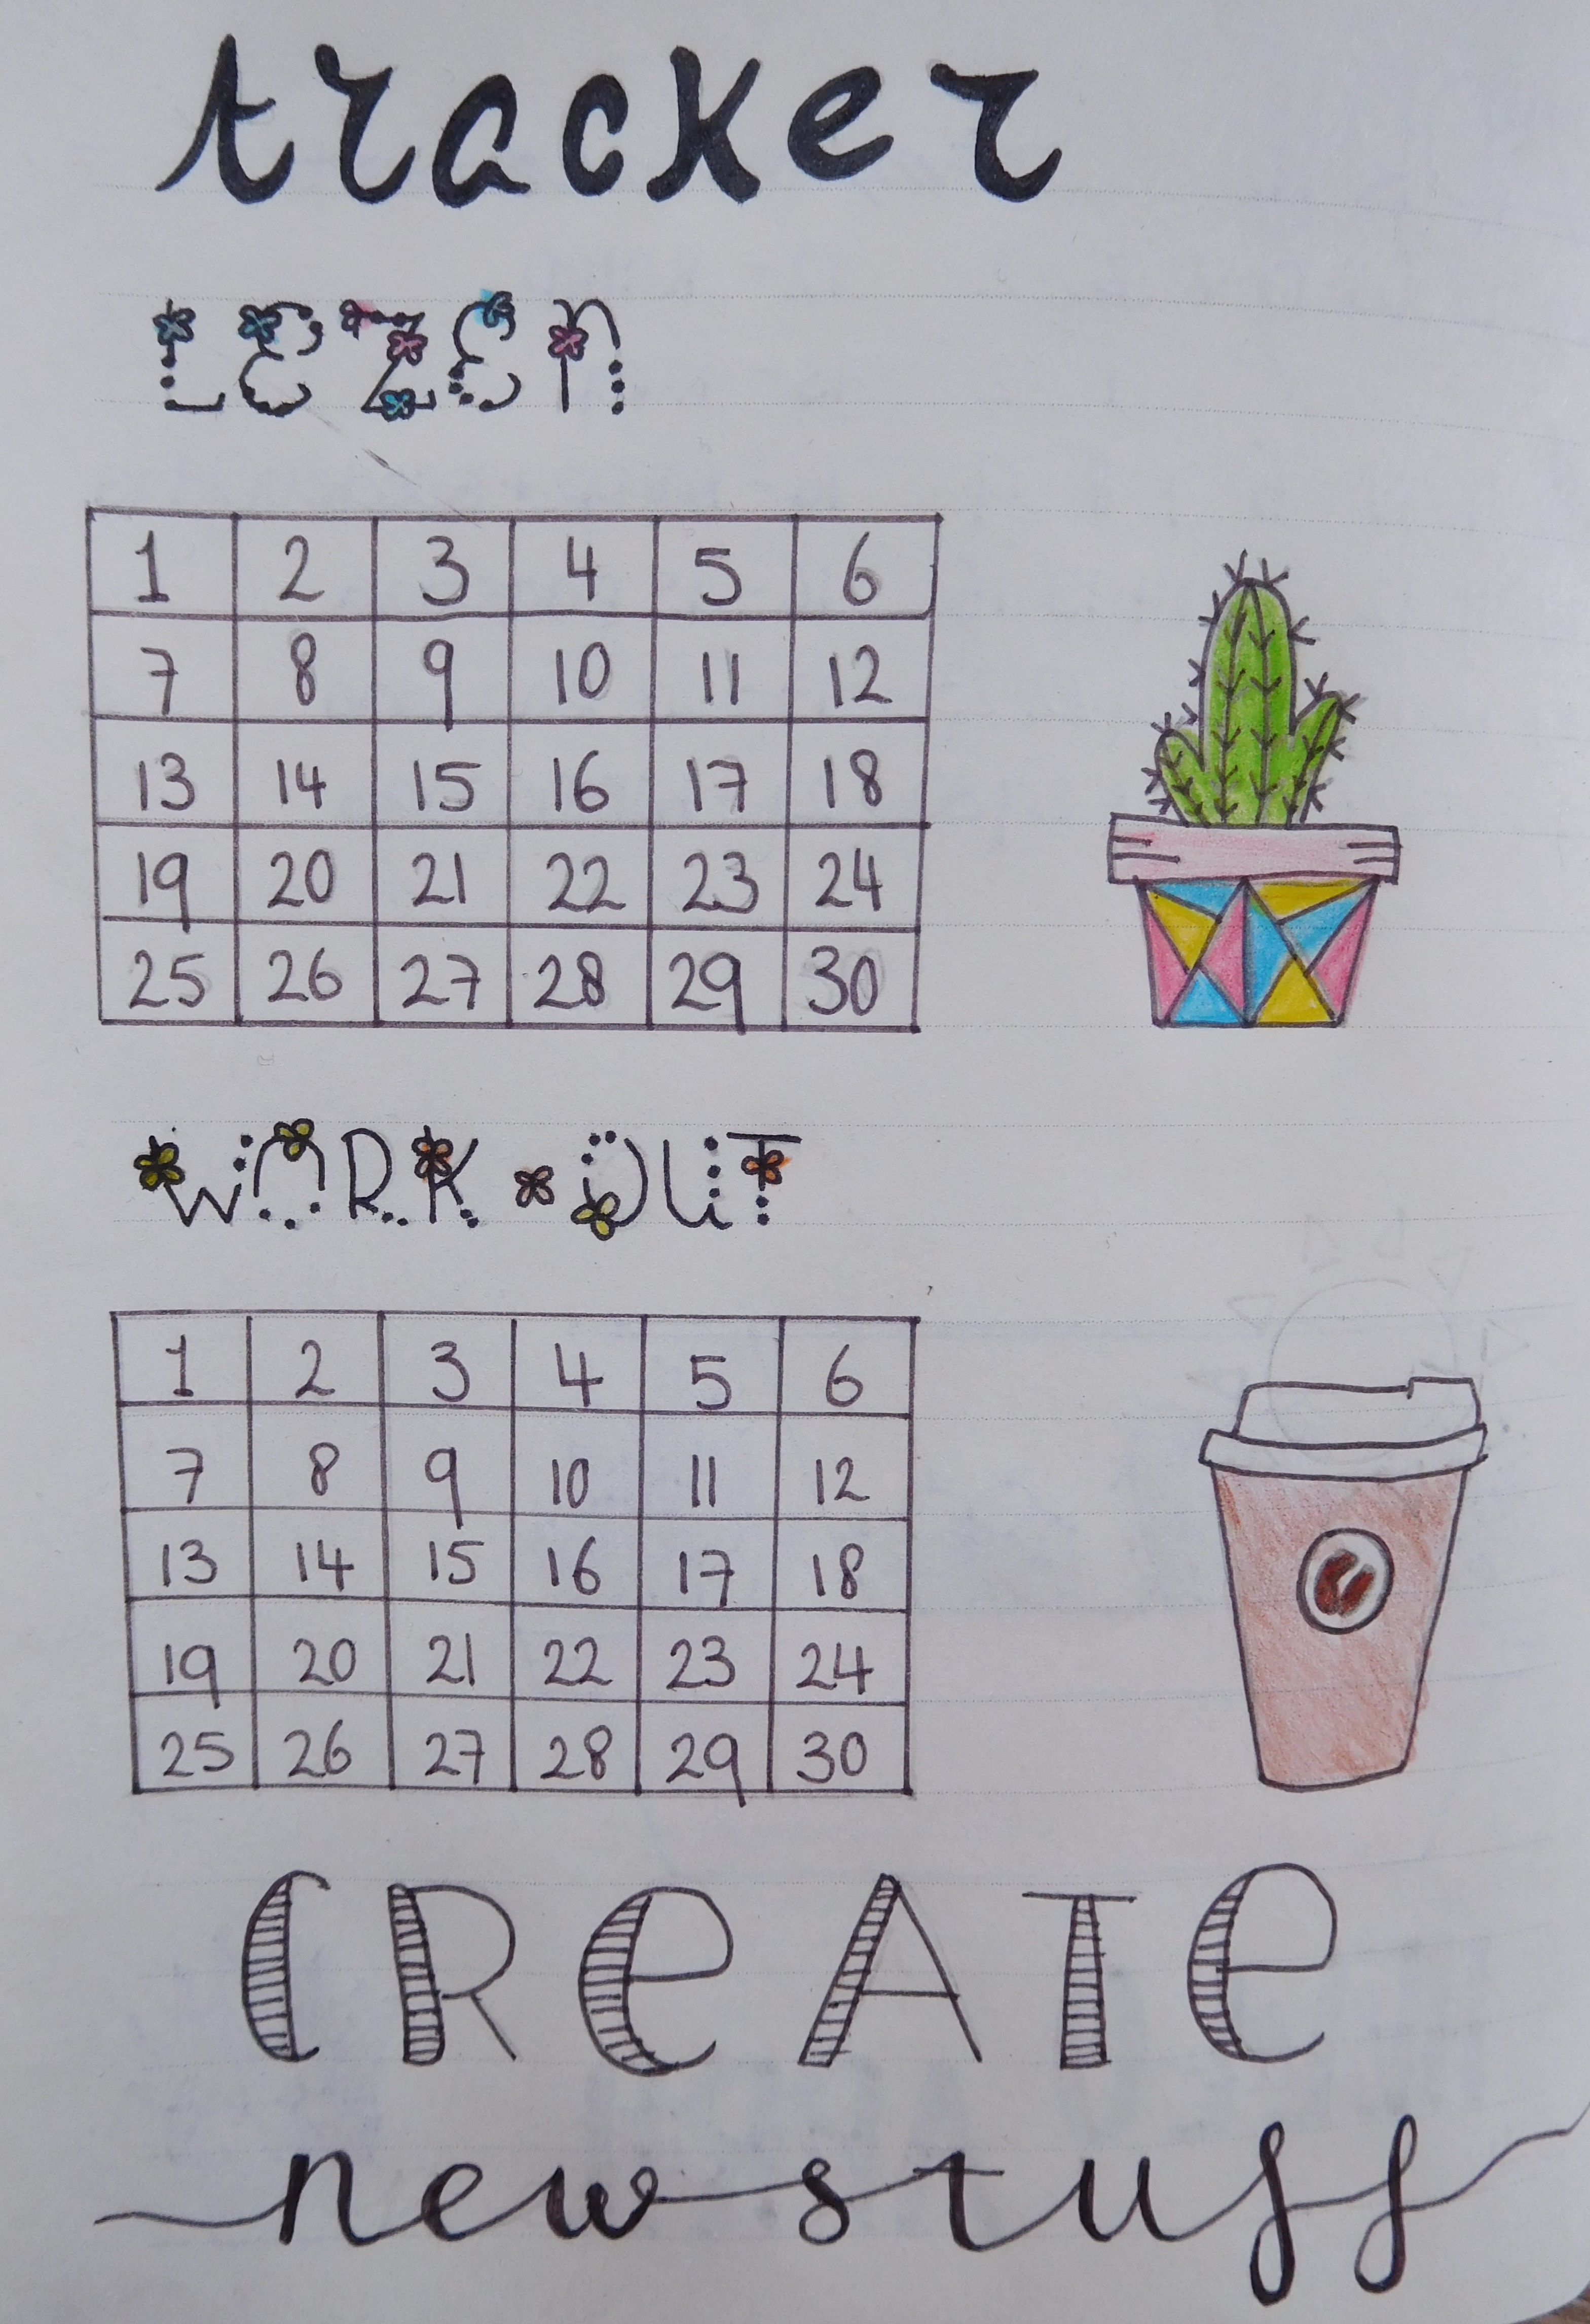 tracker
LEZEN
1 2 3 4 5 6
7 8 9 10 11 12
13 14 15 16 17 18
19 20 21 22 23 24
25 26 27 28 29 30
WORK OUT
1 2 3 4 5 6
7 8 9 10 11 12
13 14 15 16 17 18
19 20 21 22 23 24
25 26 27 28 29 30
CReATe
new stuff